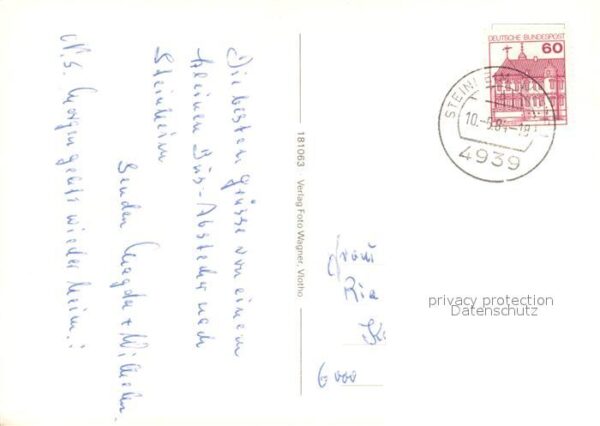 Die besten Grüsse von einem
kleinen Bus-Abstecher nach
Steinheim
senden Magda + Wilhelm.
N.S. Morgen gehts wieder heim!
181063 Verlag Foto Wagner, Vlotho
DEUTSCHE BUNDESPOST
60
10.-9.84-18
4939
Frau
Ria
6000
privacy protection
Datenschutz